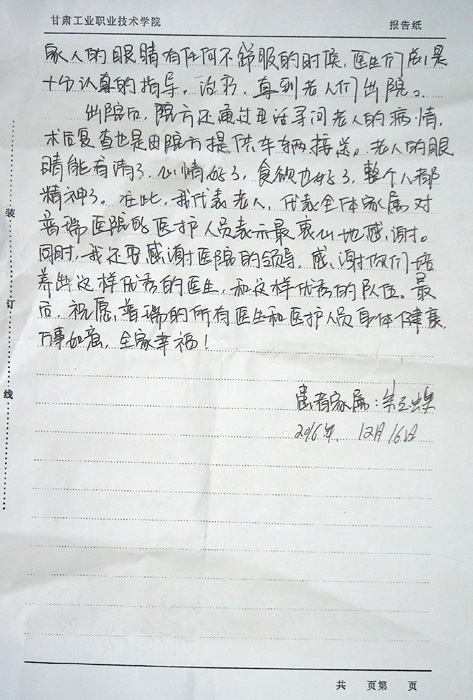 甘肃工业职业技术学院 报告纸
家人的眼睛有任何不舒服的时候,医生们总是
十分认真的指导。治疗,直到老人们出院。
出院后,院方还通过电话寻问老人的病情,
术后复查也是由院方提供车辆接送。老人的眼
睛能看清了,心情好了,食欲也好了,整个人都
精神了。在此,我代表老人,代表全体家属对
普瑞医院的医护人员表示最衷心地感谢。
同时,我还要感谢医院的领导,感谢你们培
养出这样优秀的医生,和这样优秀的队伍。最
后,祝愿普瑞的所有医生和医护人员身体健康
万事如意,全家幸福!
患者家属:
2016年 12月16日
装
订
线
共 页第 页